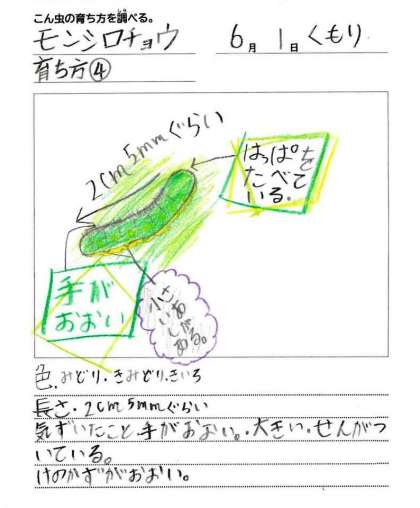 こん虫の育ち方を調べる。
モンシロチョウ 6月1日くもり
育ち方④
2cm5mmぐらい
はっぱを
たべて
いる。
手が
おおい
小さ
いあ
しが
ある。
色.みどり・きみどり.きいろ
長さ.2cm5mmぐらい
気ずいたこと 手がおおい.大きい。せんがつ
いている。
けのかずがおおい。